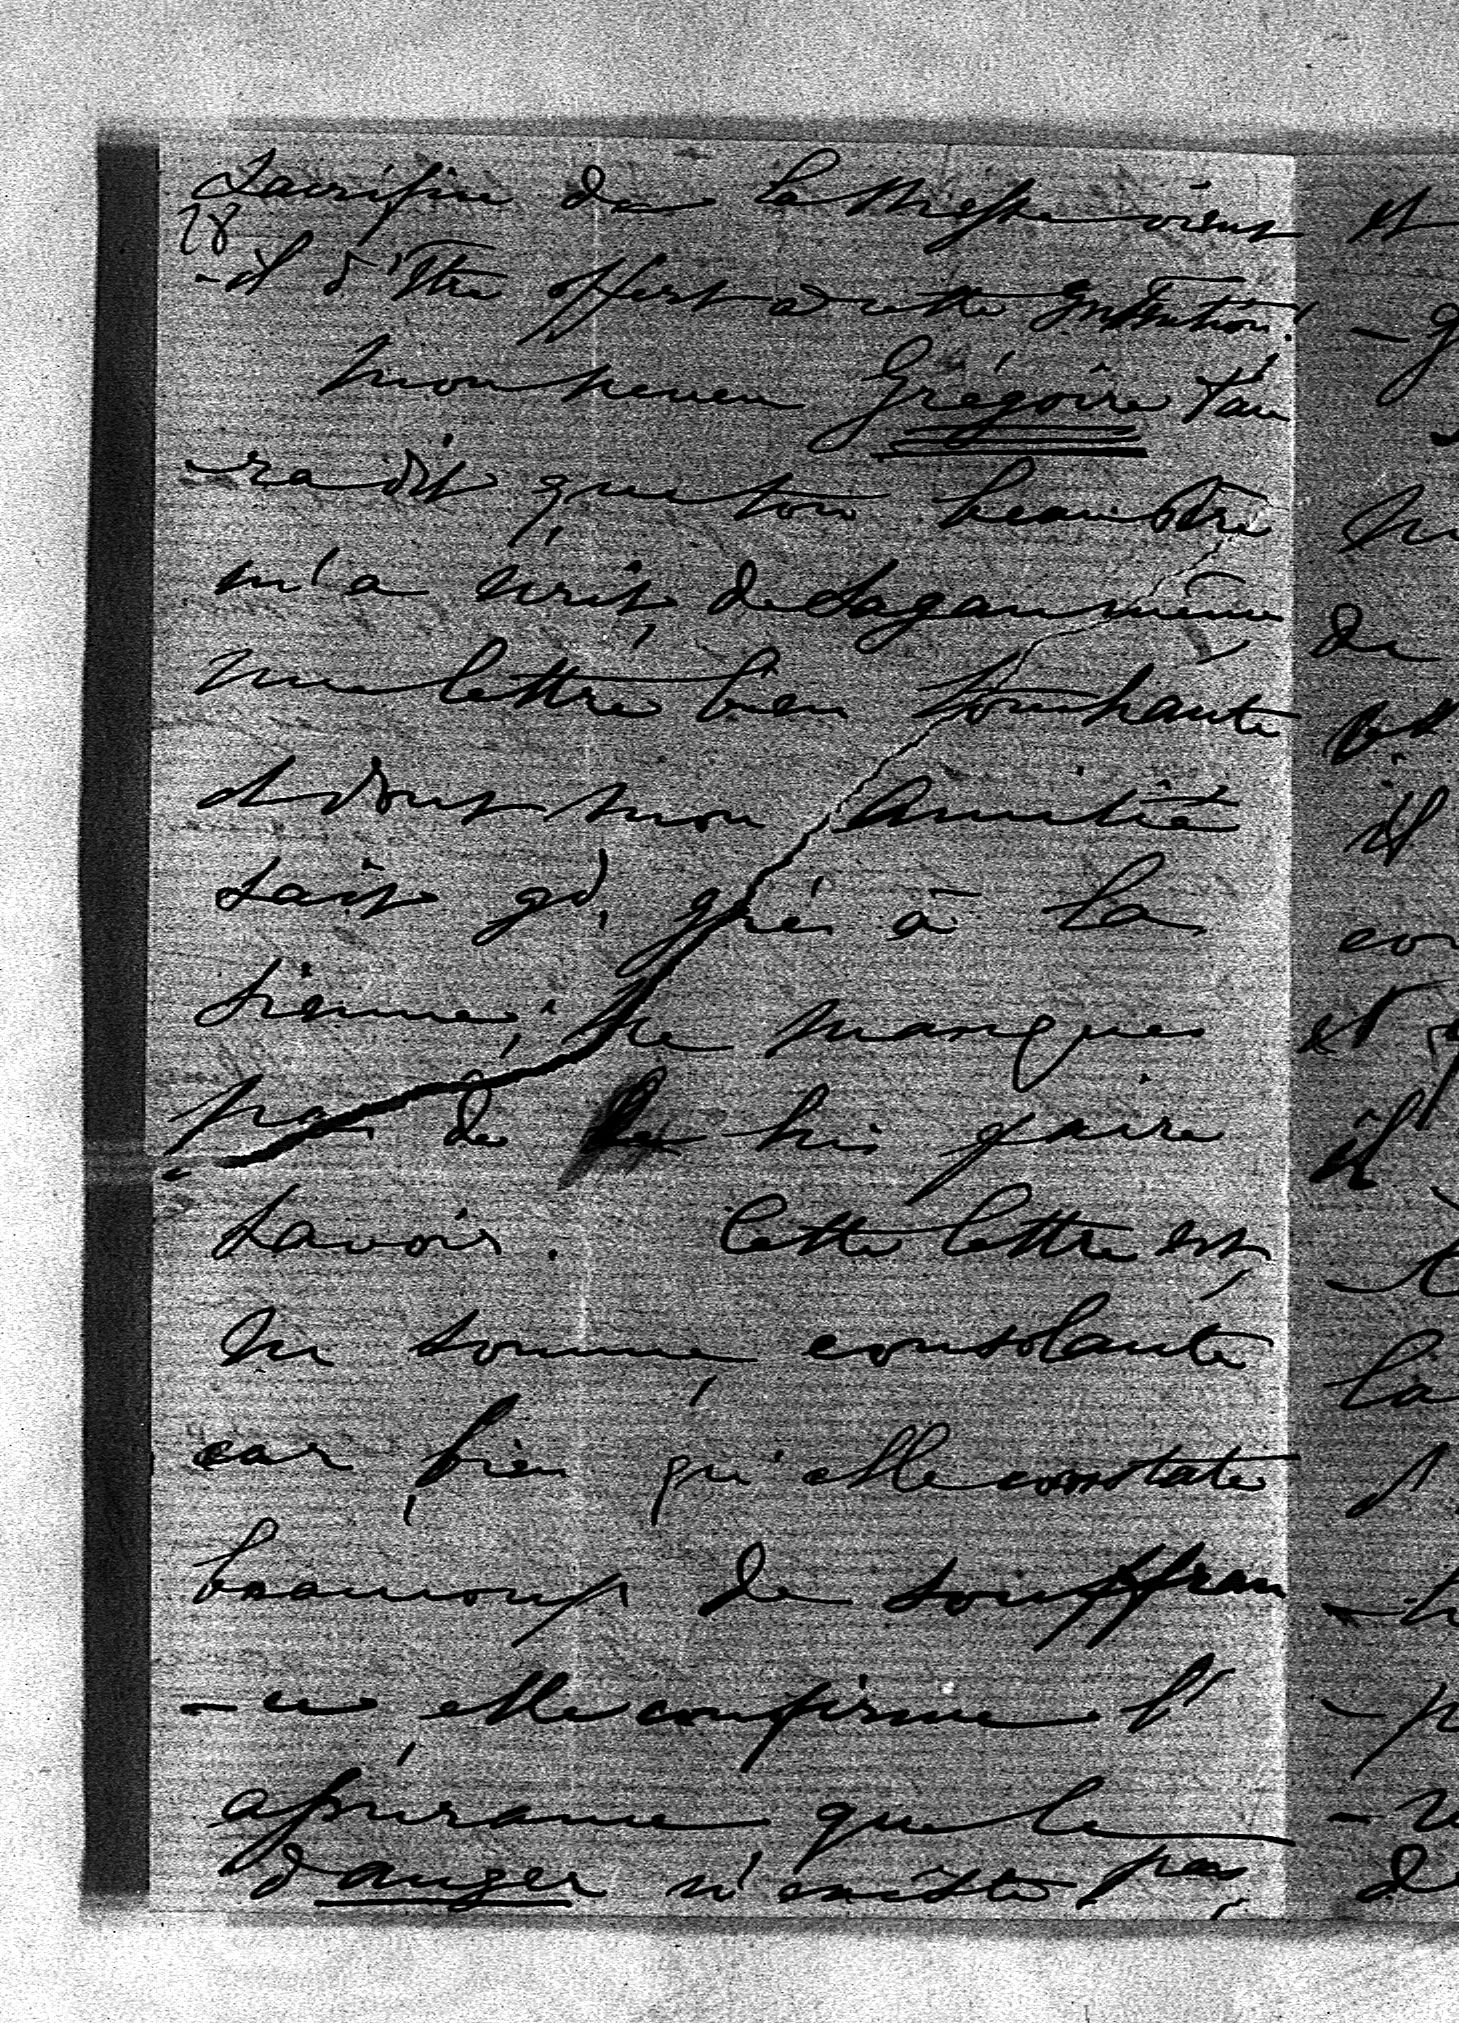 Sacrifice de la Messe vient
28
-il d'être offert à cette Institution!
Mon neveu Grégoire t'au
-ra dit que ton beaufrère
m'a écrit, de Sagan même,
une lettre bien touchante
et dont mon Amitié
sait gd. gré à la
sienne; ne manques
pas de lui faire
savoir. Cette lettre est,
en somme, consolante
car, bien qu'elle constate
beaucoup de souffran
-ce, elle confirme l'
assurance que le
danger n'existe pas,